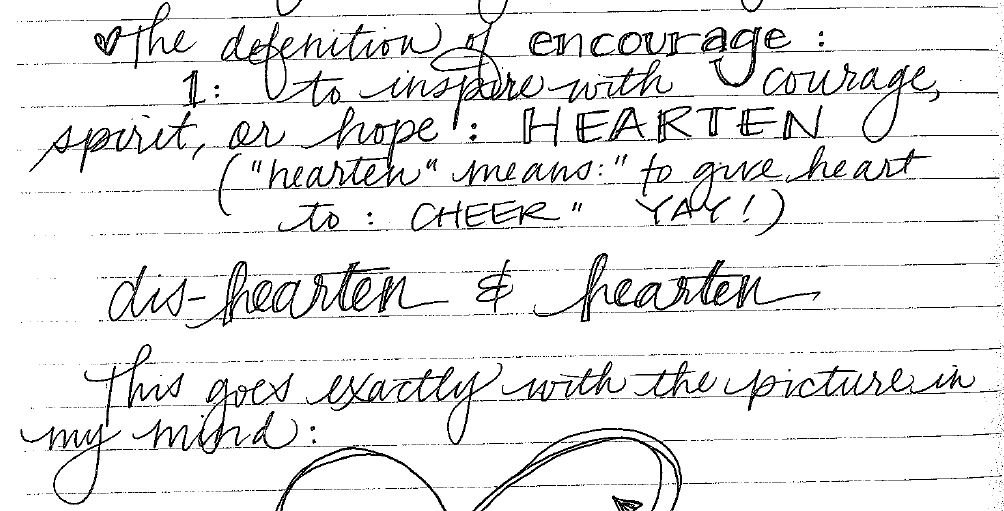 ♥ The defenition of encourage :
1: to inspire with courage,
spirit, or hope : HEARTEN
("hearten" means: "to give heart
to : CHEER" YAY!)
dis-hearten & hearten
This goes exactly with the picture in
my mind :